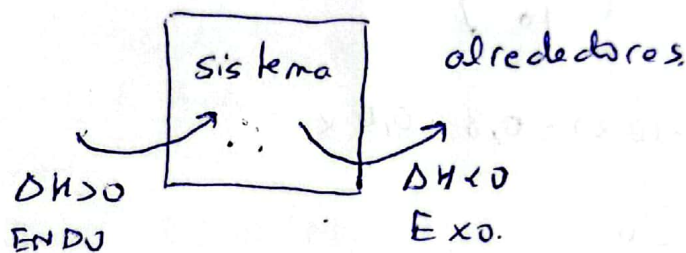 sistema
alrededores.
ΔH>0
ENDO
ΔH<0
EXO.